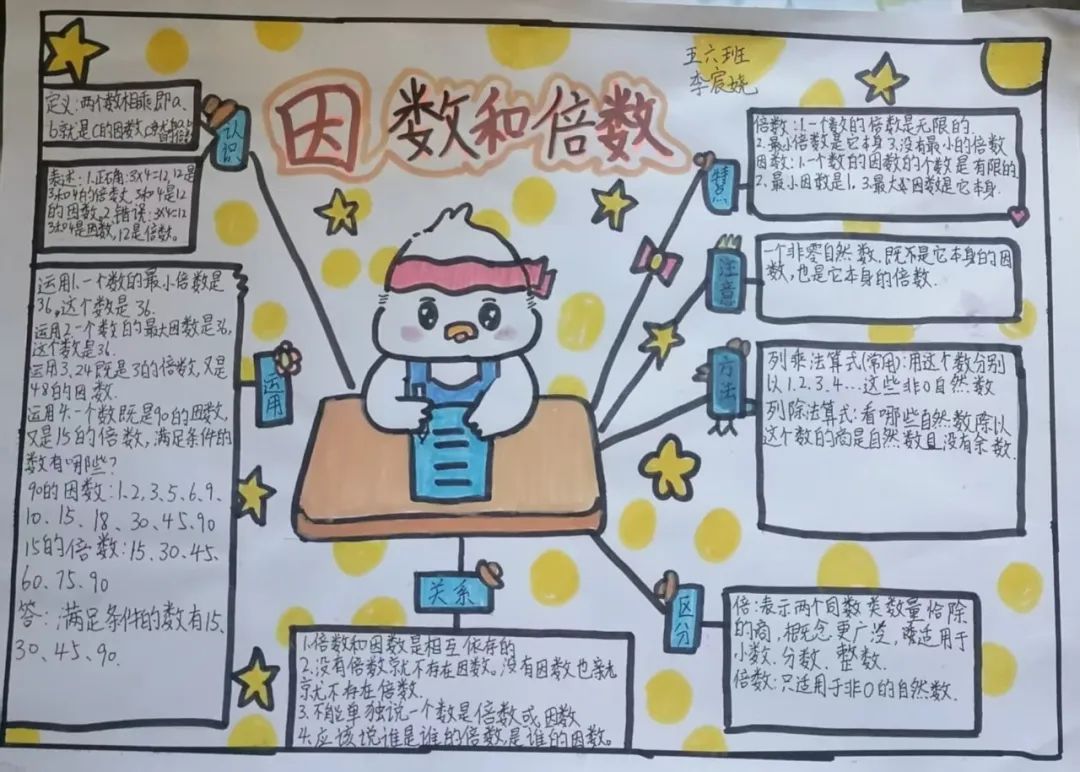 五六班
李宸娆
因数和倍数
认识
定义:两个数相乘即a、
b就是c的因数,c就是a、b
的倍数
表述:1.正确:3x4=12,12是
3和4的倍数,3和4是12
的因数。2.错误:3x4=12
3和4是因数,12是倍数。
运用
运用1.一个数的最小倍数是
36,这个数是36.
运用2.一个数的最大因数是36,
这个数是36.
运用3,24既是3的倍数,又是
48的因数.
运用4.一个数既是90的因数,
又是15的倍数,满足条件的
数有哪些?
90的因数:1.2.3.5.6.9、
10、15、18、30、45、90
15的倍数:15、30、45、
60、75、90
答:满足条件的数有15、
30、45、90.
特点
倍数:1.一个数的倍数是无限的.
2.最小倍数是它本身3.没有最小的倍数
因数:1.一个数的因数的个数是有限的
2.最小因数是1. 3.最大因数是它本身.
注意
一个非零自然数,既不是它本身的因
数,也是它本身的倍数.
方法
列乘法算式(常用):用这个数分别
以1.2.3.4...这些非0自然数
列除法算式:看哪些自然数除以
这个数的商是自然数且没有余数.
关系
1.倍数和因数是相互依存的
2.没有倍数就不存在因数。没有因数也
就不存在倍数.
3.不能单独说一个数是倍数或因数
4.应该说谁是谁的倍数,是谁的因数。
区分
倍:表示两个同类数量恰除
的商,概念更广泛,适用于
小数.分数、整数.
倍数:只适用于非0的自然数.